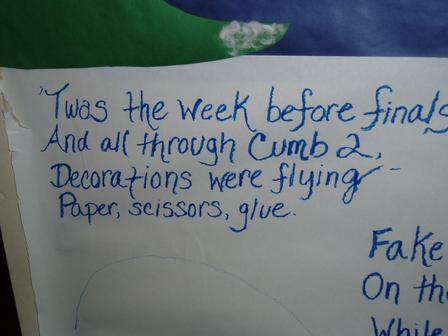 'Twas the week before finals
And all through Cumb 2,
Decorations were flying -
Paper, scissors, glue.
Fake
On the
While